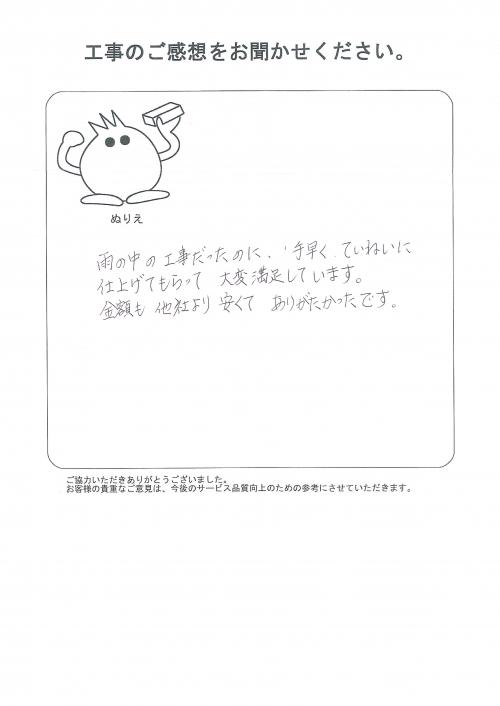 工事のご感想をお聞かせください。
ぬりえ
雨の中の工事だったのに、手早く、ていねいに
仕上げてもらって 大変満足しています。
金額も 他社より 安くて ありがたかったです。
ご協力いただきありがとうございました。
お客様の貴重なご意見は、今後のサービス品質向上のための参考にさせていただきます。